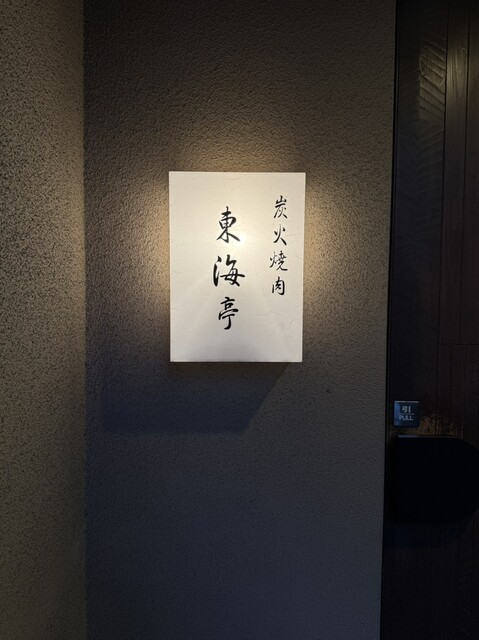 炭火焼肉
東海亭
引
PULL